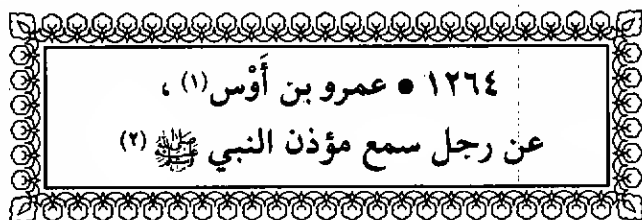 ١٢٦٤ • عمرو بن أَوْس(١) ،
عن رجل سمع مؤذن النبي ﷺ (٢)